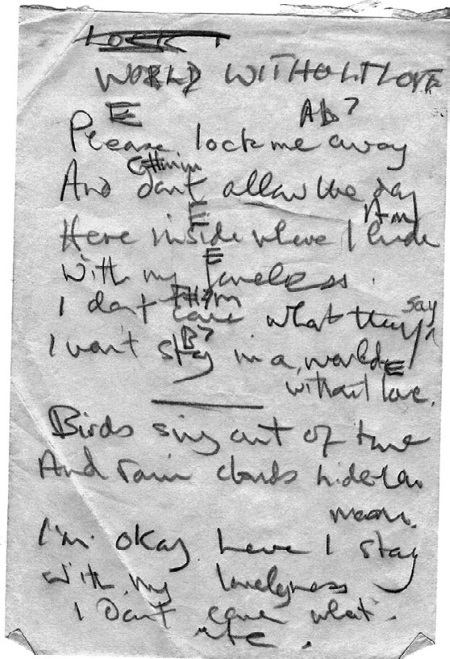 LOCK
WORLD WITHOUT LOVE
E Ab7
Please lock me away
C#min
And dont allow the day
E Am
Here inside where I hide
E
with my loneless.
F#m
I dont care what they say
B7 E
I wont stay in a world
without love.
Birds sing out of tune
And rain clouds hide the
moon.
I'm okay here I stay
with my lonelyness
I Dont care what.
etc.